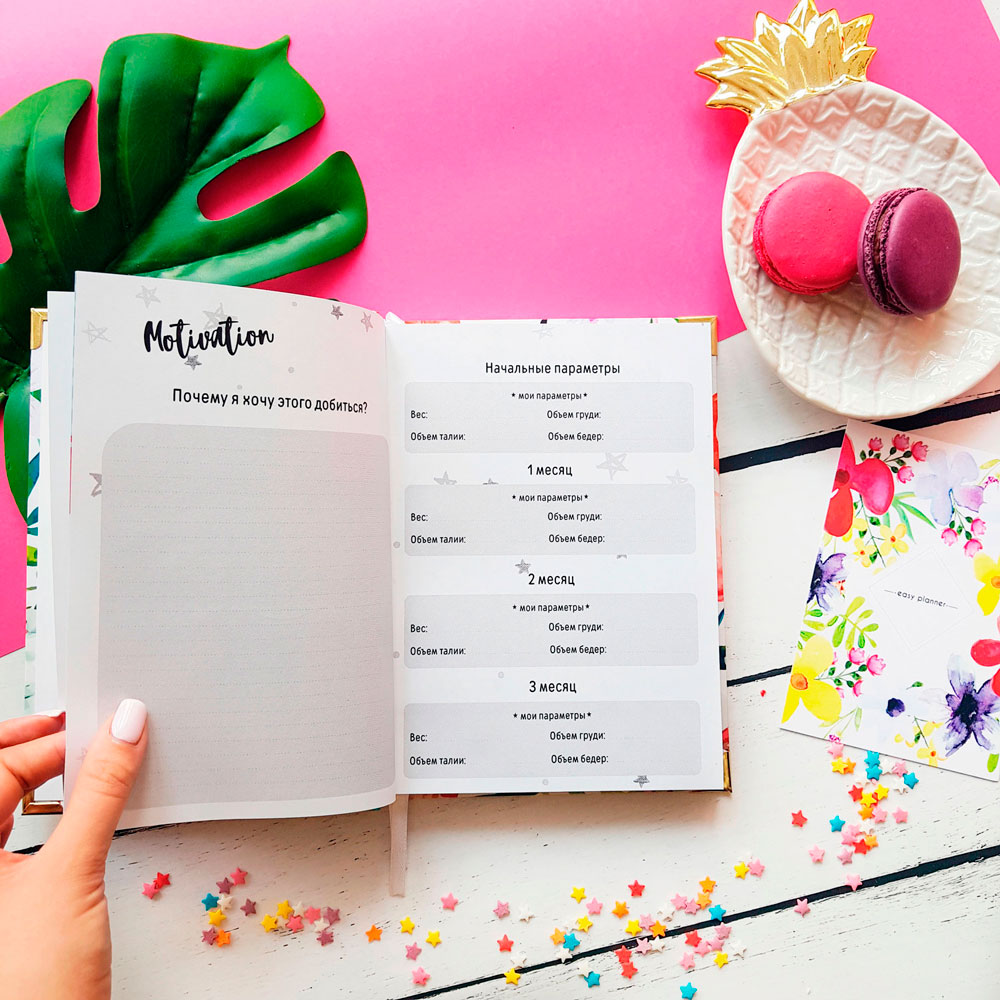 Motivation
Почему я хочу этого добиться?
Начальные параметры
* мои параметры *
Вес: Объем груди:
Объем талии: Объем бедер:
1 месяц
* мои параметры *
Вес: Объем груди:
Объем талии: Объем бедер:
2 месяц
* мои параметры *
Вес: Объем груди:
Объем талии: Объем бедер:
3 месяц
* мои параметры *
Вес: Объем груди:
Объем талии: Объем бедер:
easy planner